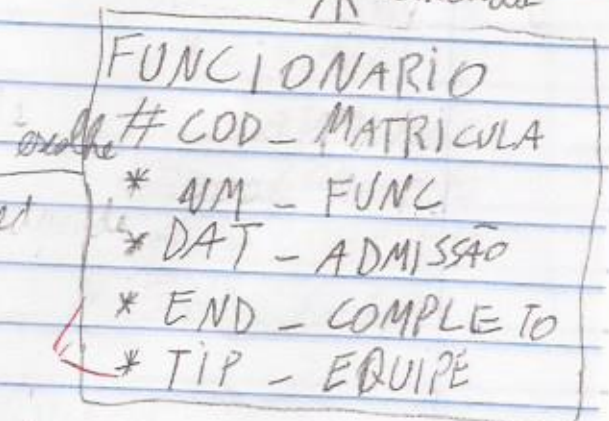 FUNCIONARIO
# COD_ MATRICULA
* NM _ FUNC
* DAT _ ADMISSÃO
* END _ COMPLETO
* TIP _ EQUIPE